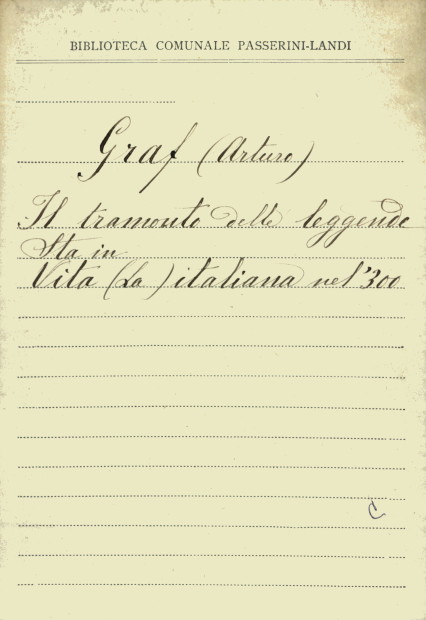 BIBLIOTECA COMUNALE PASSERINI-LANDI
Graf (Arturo)
Il tramonto delle leggende
Sta in
Vita (La) italiana nel '300
C